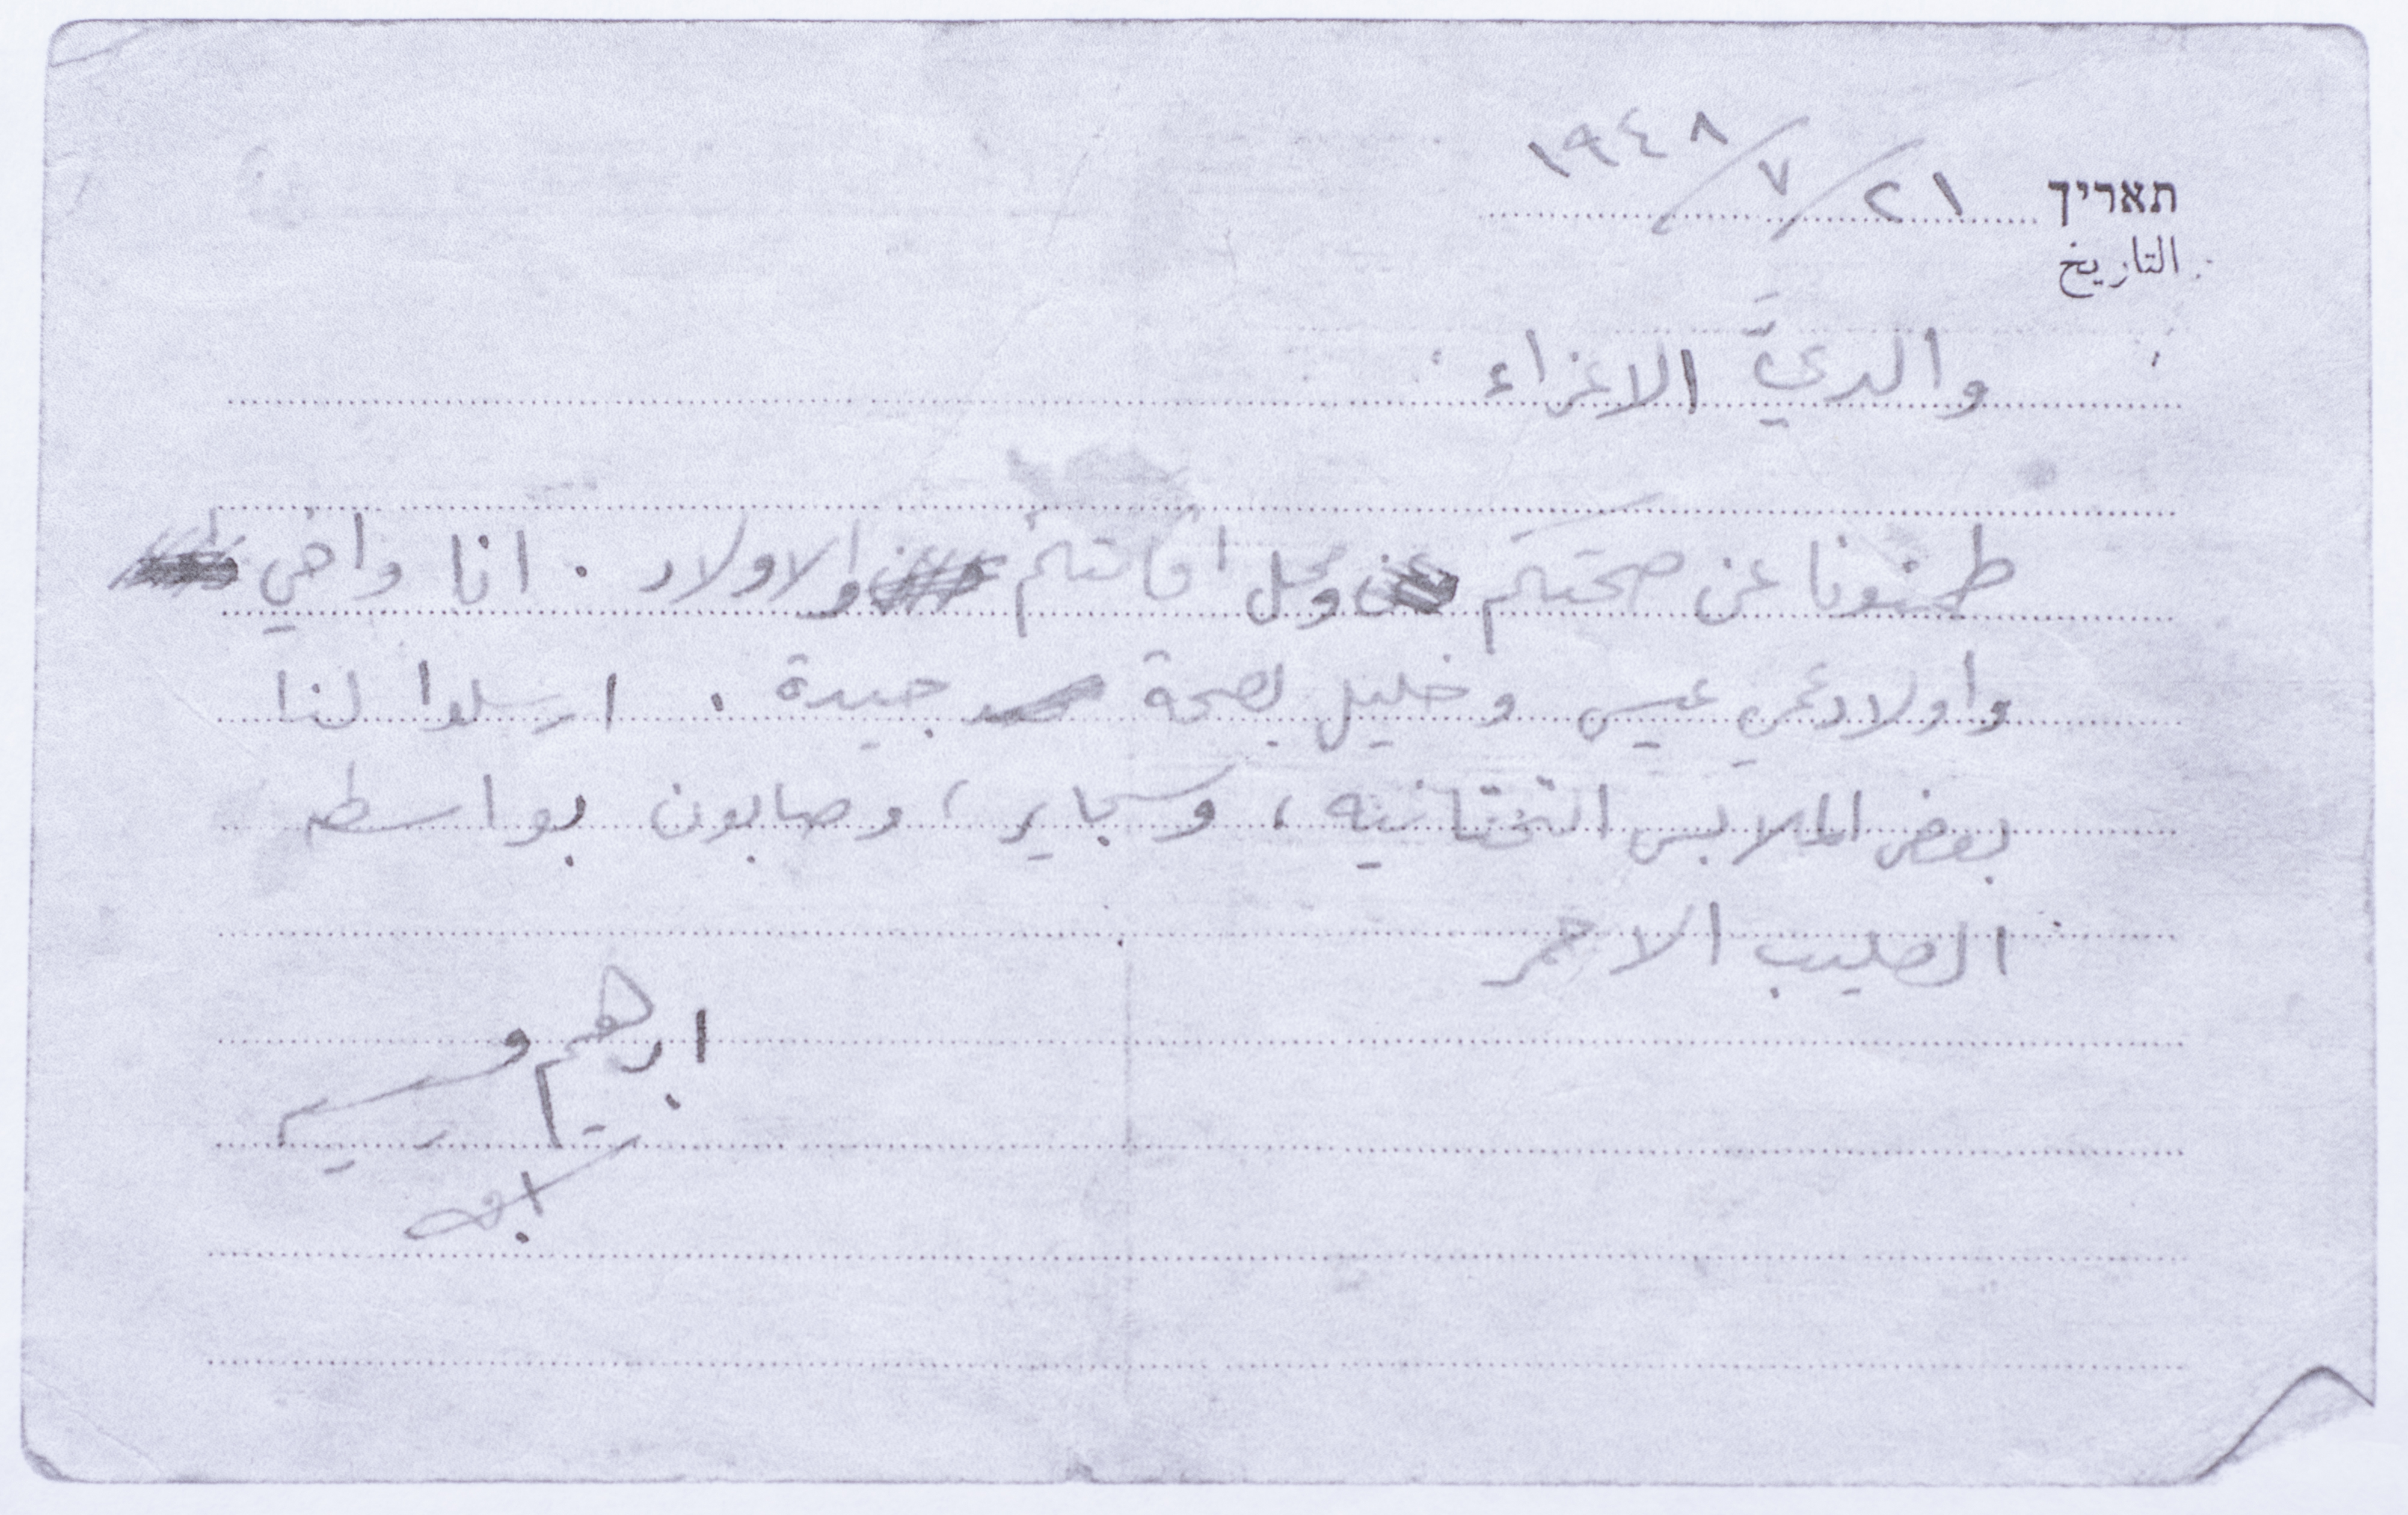 תאריך ٢١/٧/١٩٤٨
التاريخ
والديَّ الاعزاء
طمنونا عن صحتكم ومحل اقامتكم والاولاد . انا واخي
واولاد عمي عيسى وخليل بصحة جيدة . ارسلوا لنا
بعض الملابس التحتانيه ، وسجاير ، وصابون بواسطه
الصليب الاحمر
ابرهيم